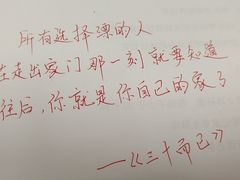 所有选择漂的人
在走出家门那一刻就要知道
往后,你就是你自己的家了
—《三十而已》